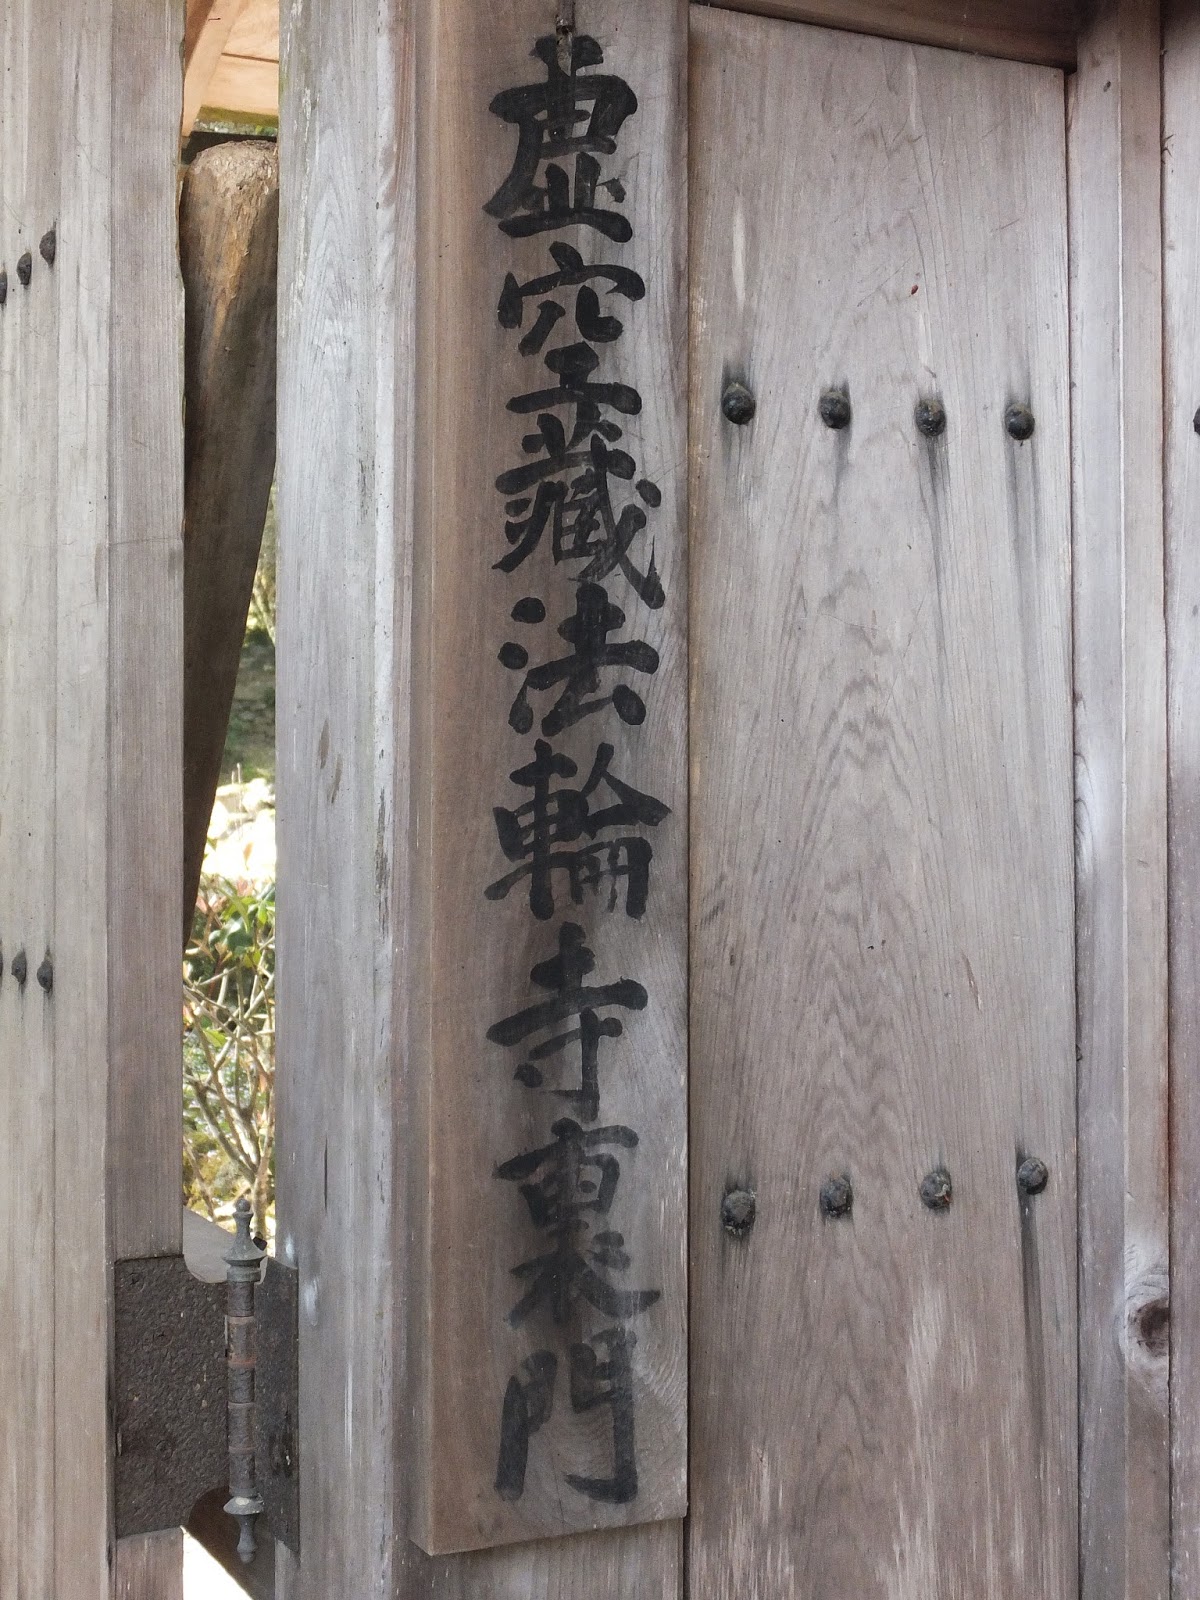 虚空藏法輪寺裏門